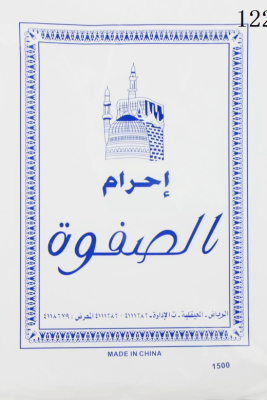 122
إحرام
الصفوة
الرياض - الديقلية - ت الإدارة: ٤١١١٢٨٢ - ٤١١١٢٨٢ المعرض: ٤١١٨٦٧٩
MADE IN CHINA
1500